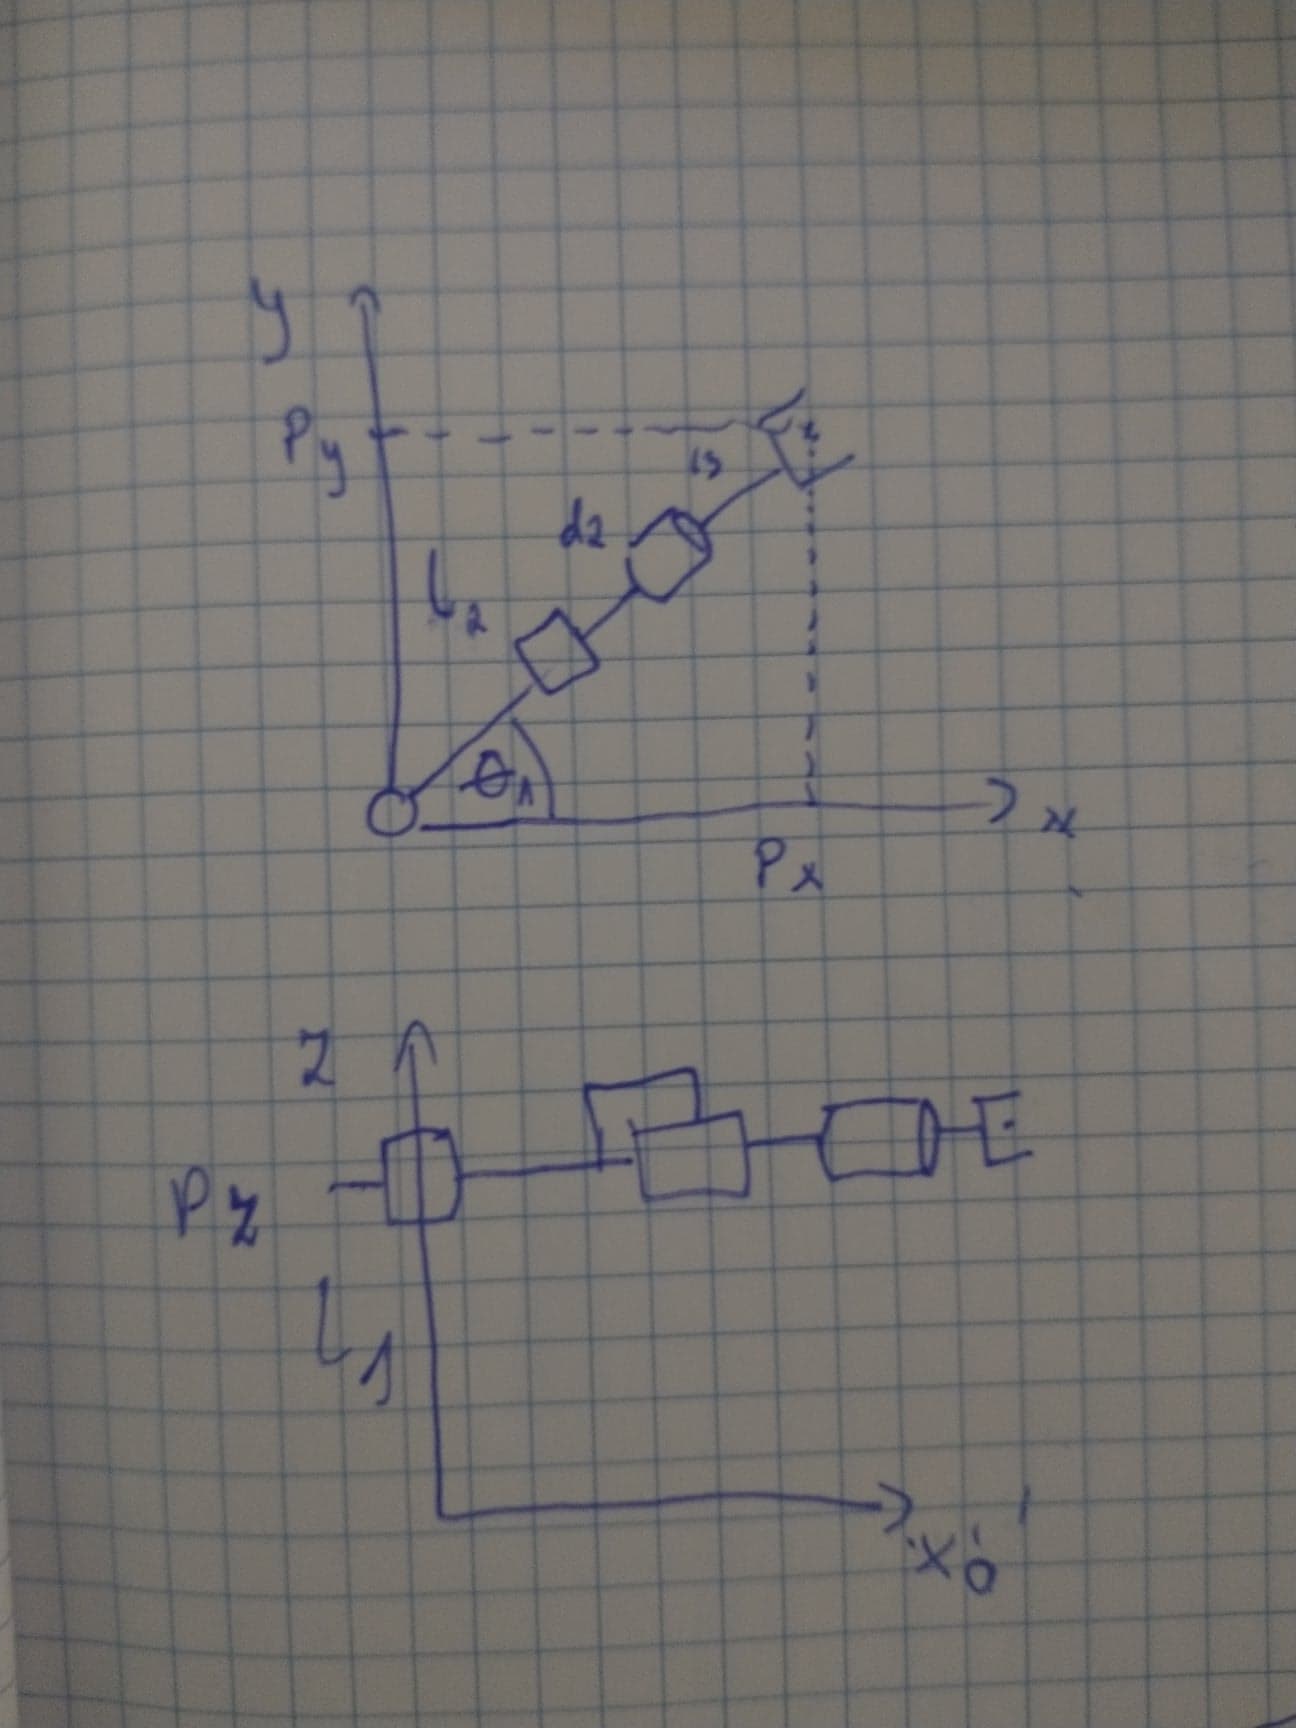 y
Py
l3
d2
L2
θ1
x
Px
Z
Pz
L1
x0'